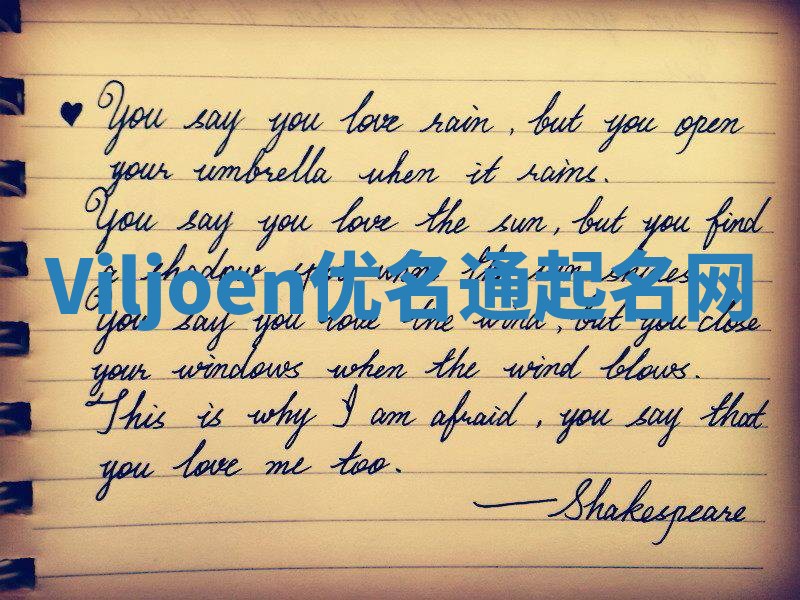 ♥ You say you love rain, but you open
your umbrella when it rains.
You say you love the sun, but you find
a shadow spot when the sun shines.
Viljoen优名通起名网
You say you love the wind, but you close
your windows when the wind blows.
This is why I am afraid, you say that
you love me too.
—Shakespeare